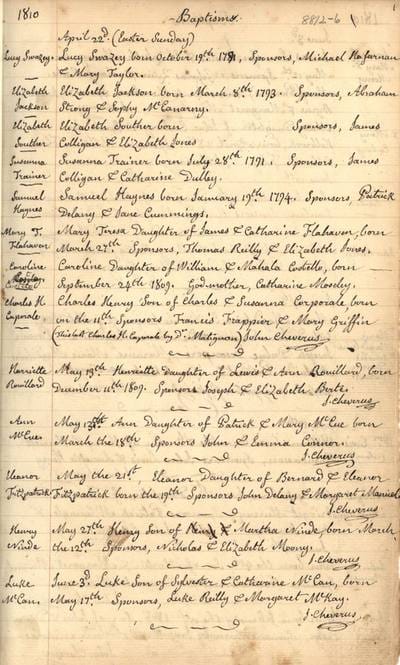 1810 Baptisms. 8812-6 1
April 22d. (Easter Sunday)
Lucy Swazey. Lucy Swazey born October 19th. 1791, Sponsors, Michael
& Mary Taylor.
Elizabeth Jackson Elizabeth Jackson born March 8th. 1793. Sponsors, Abraham
Strong & Sophy McCanarny.
Elizabeth Souther Elizabeth Souther born Sponsors, James
Colligan & Elizabeth Jones
Susanna Trainer Susanna Trainer born July 28th. 1791. Sponsors, James
Colligan & Catharine Dulley.
Samuel Haynes Samuel Haynes born January 19th. 1794. Sponsors, Patrick
Delany & Jane Cummings.
Mary T. Flahaven Mary Teresa Daughter of James & Catharine Flahaven, born
March 27th. Sponsors, Thomas Reilly & Elizabeth Jones.
Caroline Costello Caroline Daughter of William & Mahala Costello, born
September 24th 1809. Godmother, Catharine Mosely.
Charles H. Caporale Charles Henry Son of Charles & Susanna Corporale born
on the 11th. Sponsors Francis Frappier & Mary Griffin
(This last Charles H. Caporale by Dr. Matignon) John Cheverus
Henriette Rouillard May 13th Henriette Daughter of Lewis & Ann Rouillard, born
December 11th. 1809. Sponsors Joseph & Elizabeth Berte.
J. Cheverus
Ann McCue. May Ann Daughter of Patrick & Mary McCue born
March the 18th. Sponsors John & Emma Connor.
J. Cheverus
Eleanor Fitzpatrick May the 21st. Eleanor Daughter of Bernard & Eleanor
Fitzpatrick born the 19th. Sponsors John Delany & Margaret Manuel
J. Cheverus
Henry Ninde May 27th Henry Son of & Martha Ninde, born March
the 12th. Sponsors, Nicholas & Elizabeth Moony.
J. Cheverus
Luke McCan. June 3d. Luke Son of Sylvester & Catharine McCan, born
May 17th. Sponsors, Luke Reilly & Margaret McKay.
J. Cheverus